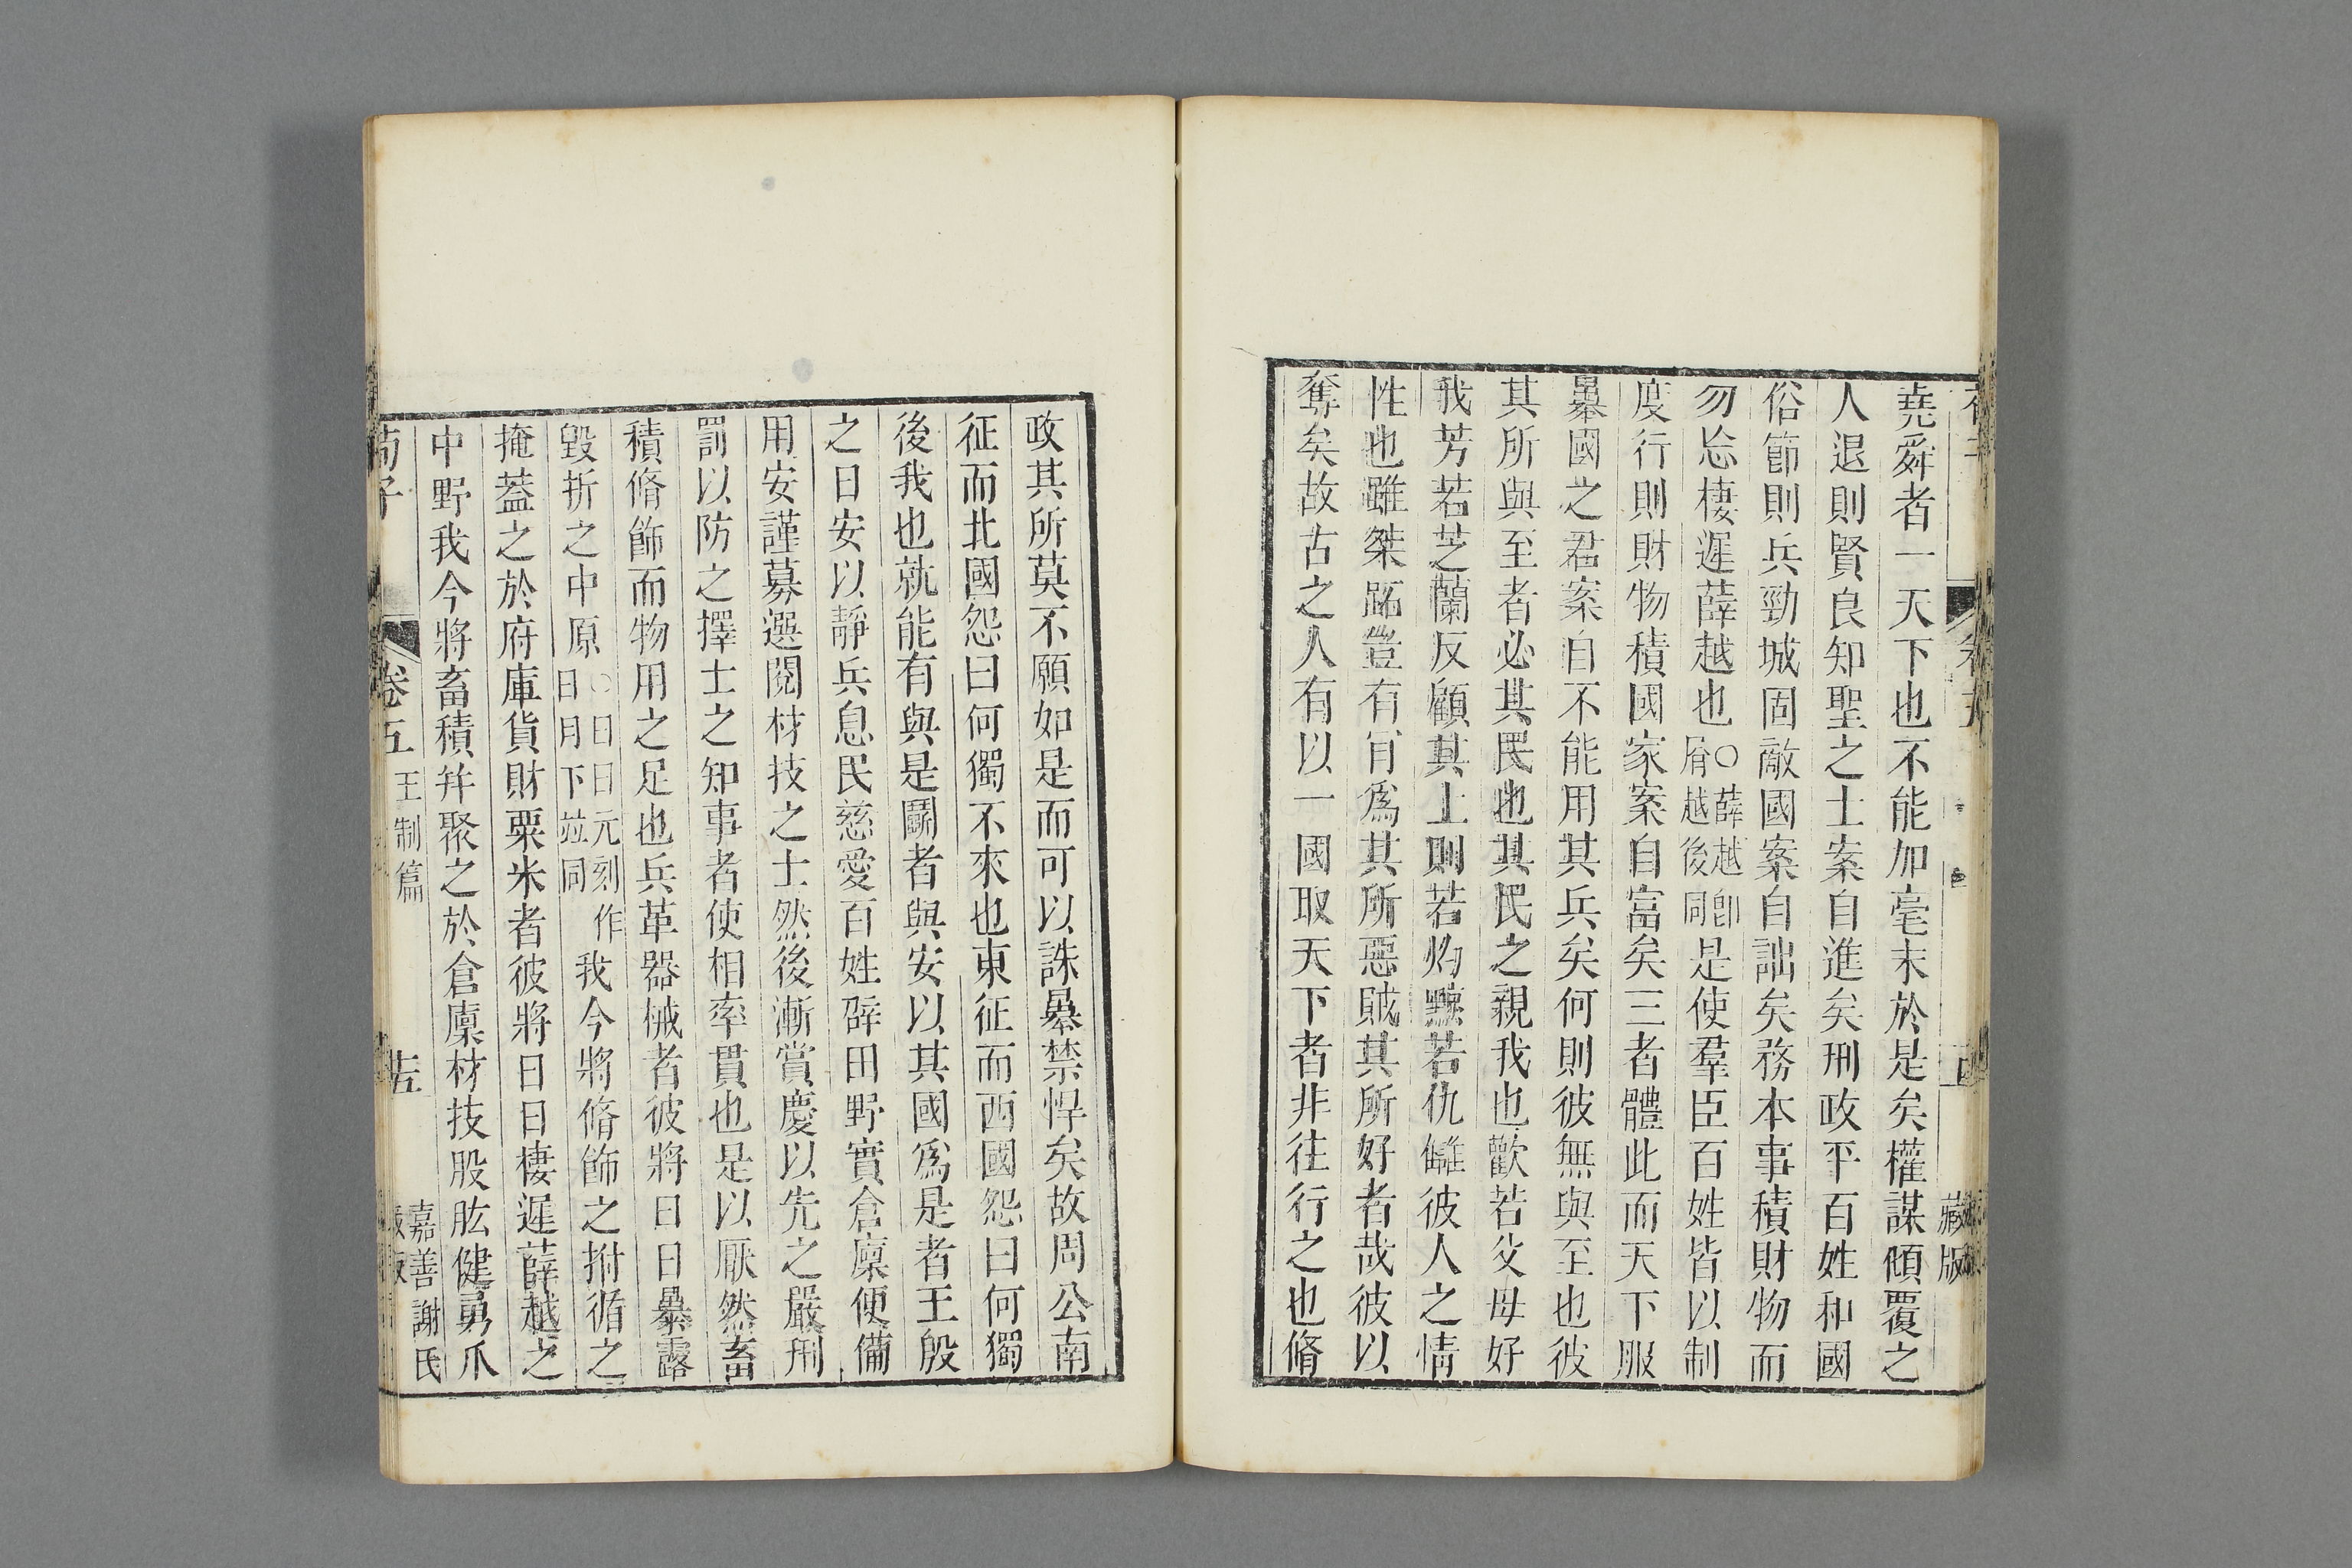 堯舜者一天下也不能加毫末於是矣權謀傾覆之
人退則賢良知聖之士案自進矣刑政平百姓和國
俗節則兵勁城固敵國案自詘矣務本事積財物而
勿忘棲遲薛越也〇薛越卽屑越後同是使羣臣百姓皆以制
度行則財物積國家案自富矣三者體此而天下服
暴國之君案自不能用其兵矣何則彼無與至也彼
其所與至者必其民也其民之親我也歡若父母好
我芳若芝蘭反顧其上則若灼黥若仇讎彼人之情
性也雖桀跖豈有肎爲其所惡賊其所好者哉彼以
奪矣故古之人有以一國取天下者非往行之也脩
藏版
政其所莫不願如是而可以誅暴禁悍矣故周公南
征而北國怨曰何獨不來也東征而西國怨曰何獨
後我也就能有與是鬭者與安以其國爲是者王殷
之日安以靜兵息民慈愛百姓辟田野實倉廩便備
用安謹募選閱材技之士然後漸賞慶以先之嚴刑
罰以防之擇士之知事者使相率貫也是以厭然畜
積脩飾而物用之足也兵革器械者彼將日日暴露
毀折之中原〇日日元刻作日月下竝同我今將脩飾之拊循之
掩蓋之於府庫貨財粟米者彼將日日棲遲薛越之
中野我今將畜積幷聚之於倉廩材技股肱健勇爪
荀子 卷五 王制篇 十五 嘉善謝氏